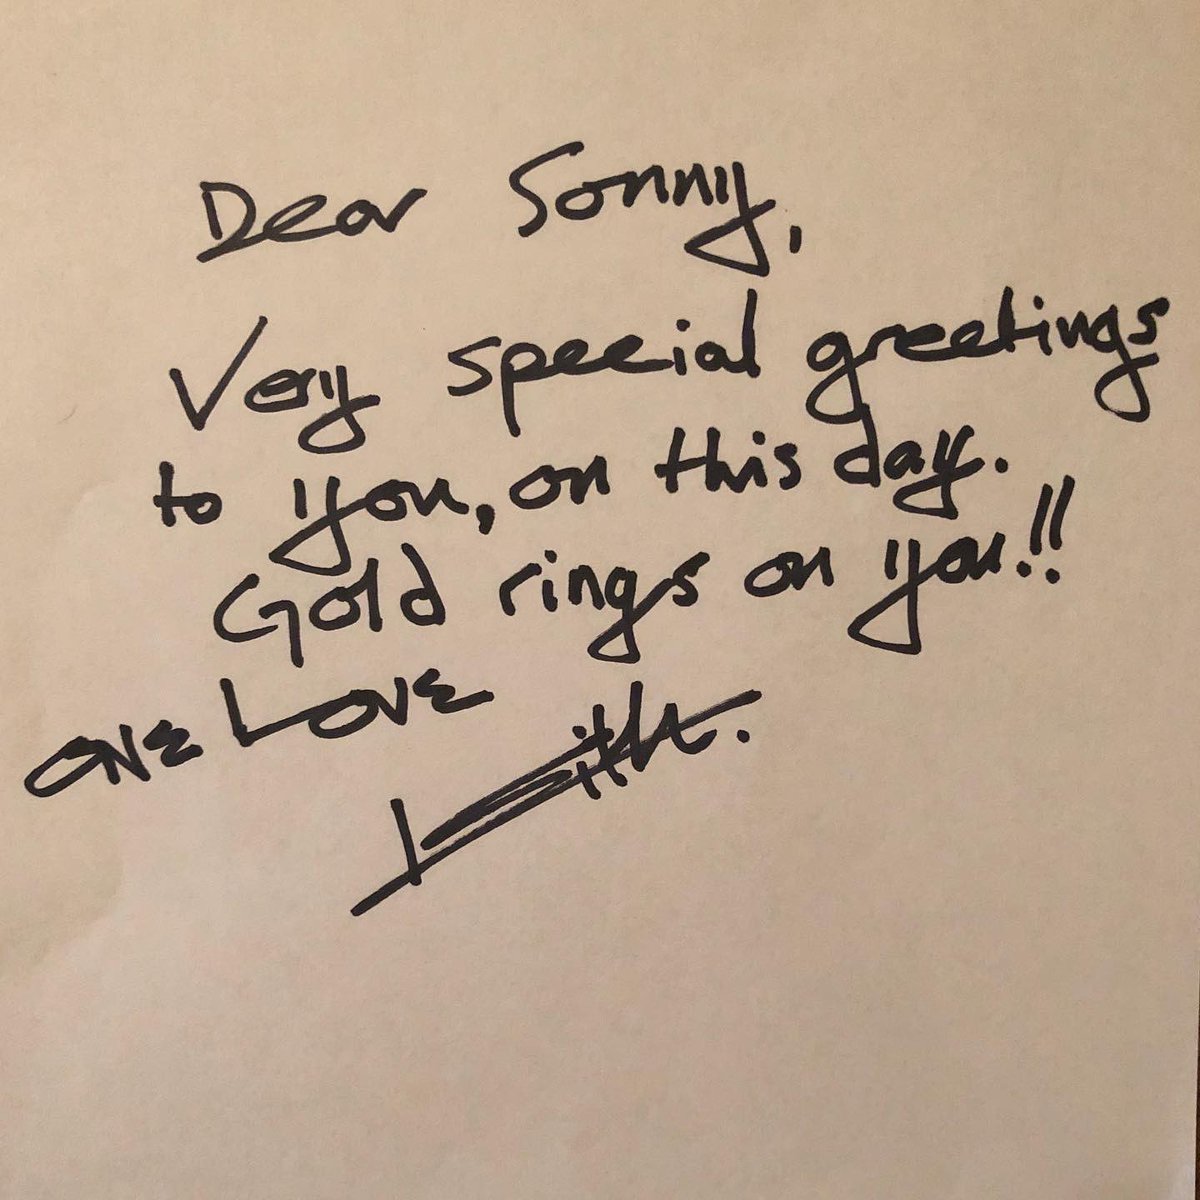 Dear Sonny,
Very special greetings
to you, on this day.
Gold rings on you!!
ONE LOVE
Keith.